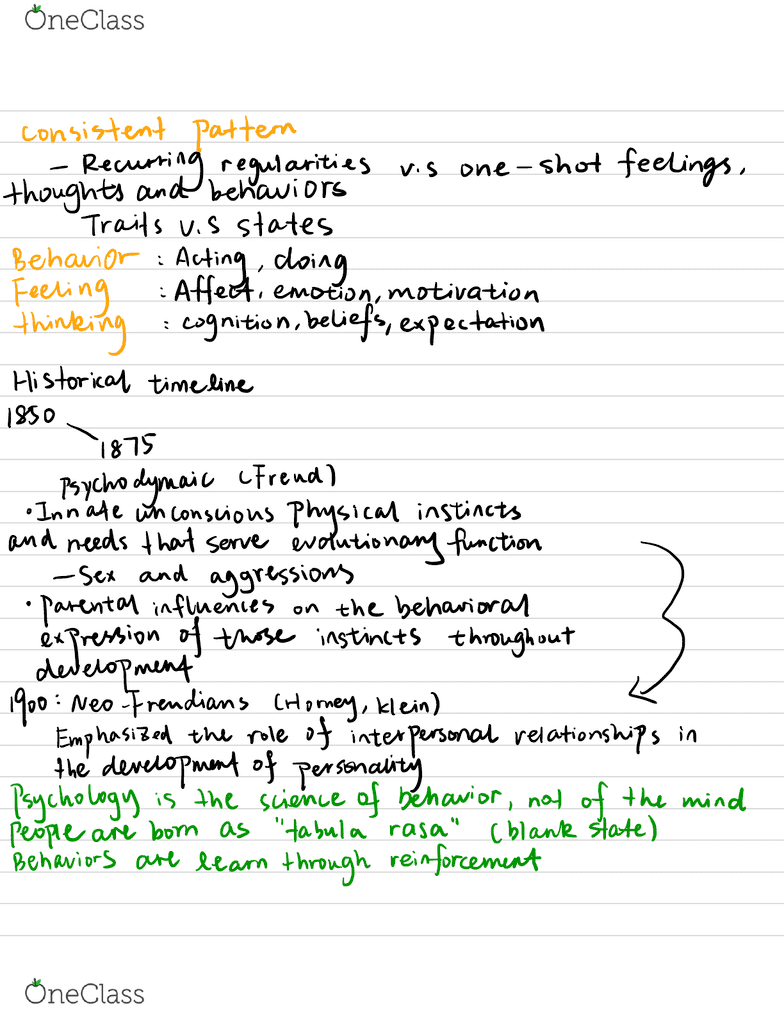 OneClass
Consistent pattern
- Recurring regularities v.s one-shot feelings,
thoughts and behaviors
Traits v.s states
Behavior : Acting, doing
Feeling : Affect, emotion, motivation
thinking : cognition, beliefs, expectation
Historical timeline
1850
1875
Psychodymaic (Freud)
• Innate unconscious Physical instincts
and needs that serve evolutionary function
- Sex and aggressions
• Parental influences on the behavioral
expression of those instincts throughout
development
1900: Neo-Freudians (Horney, klein)
Emphasized the role of interpersonal relationships in
the development of personality
Psychology is the science of behavior, not of the mind
People are born as "tabula rasa" (blank state)
Behaviors are learn through reinforcement
OneClass